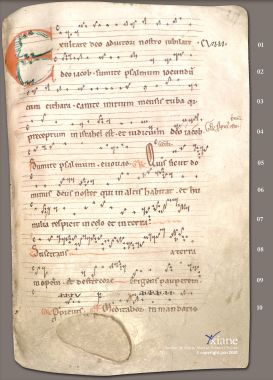 Exultate deo adiutori nostro iubilate
deo iacob sumite psalmum iocundū
cum cithara canite initium mensis tuba qr
preceptum in israhel est et iudicium deo iacob
Sumite psalmum euouae Quis sicut do
minus deus noster qui in altis habitat et hu
milia respicit in celo et in terra
Suscitans a terra
inopem et de stercore erigens pauperem
Meditabor in mandatis
01
02
03
04
05
06
07
08
09
10
xiane
© copyright.pan 2002